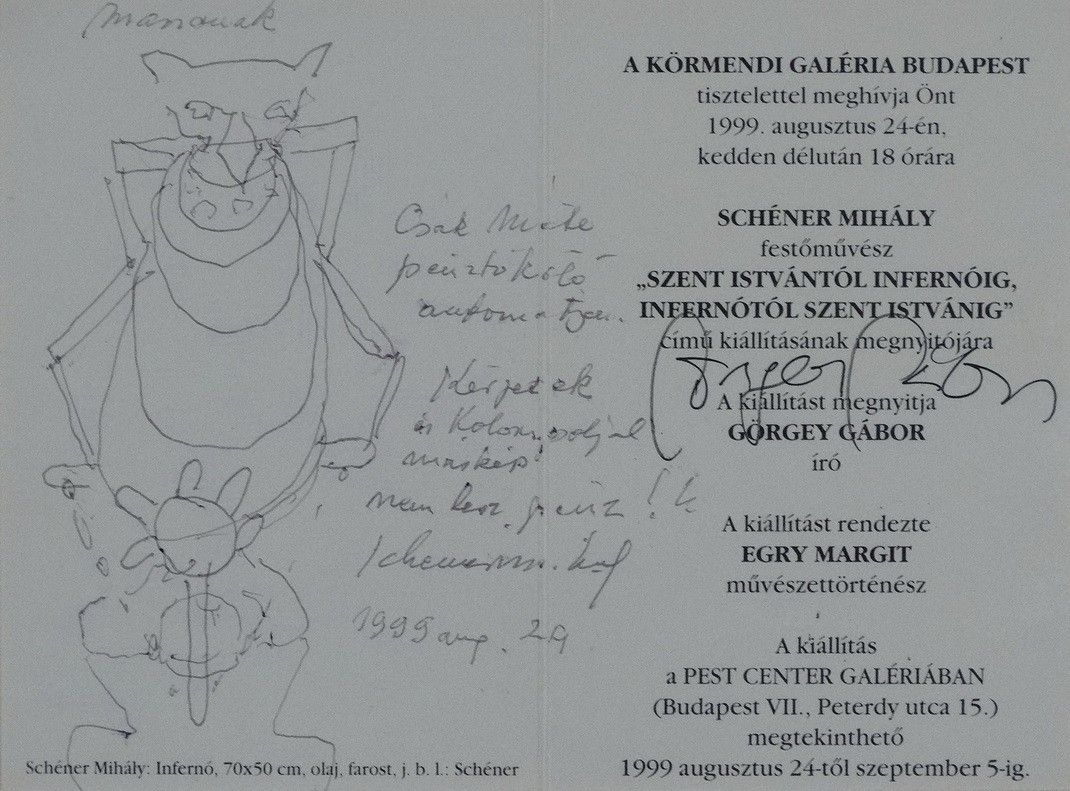 Csák Máté
pénzköltő
automatája.
Kérjetek
és
másképp
nem lesz pénz!!
1999 aug. 24
Schéner Mihály: Infernó, 70x50 cm, olaj, farost, j. b. l.: Schéner
A KÖRMENDI GALÉRIA BUDAPEST
tisztelettel meghívja Önt
1999. augusztus 24-én,
kedden délután 18 órára
SCHÉNER MIHÁLY
festőművész
„SZENT ISTVÁNTÓL INFERNÓIG,
INFERNÓTÓL SZENT ISTVÁNIG”
című kiállításának megnyitójára
A kiállítást megnyitja
GÖRGEY GÁBOR
író
A kiállítást rendezte
EGRY MARGIT
művészettörténész
A kiállítás
a PEST CENTER GALÉRIÁBAN
(Budapest VII., Peterdy utca 15.)
megtekinthető
1999 augusztus 24-től szeptember 5-ig.